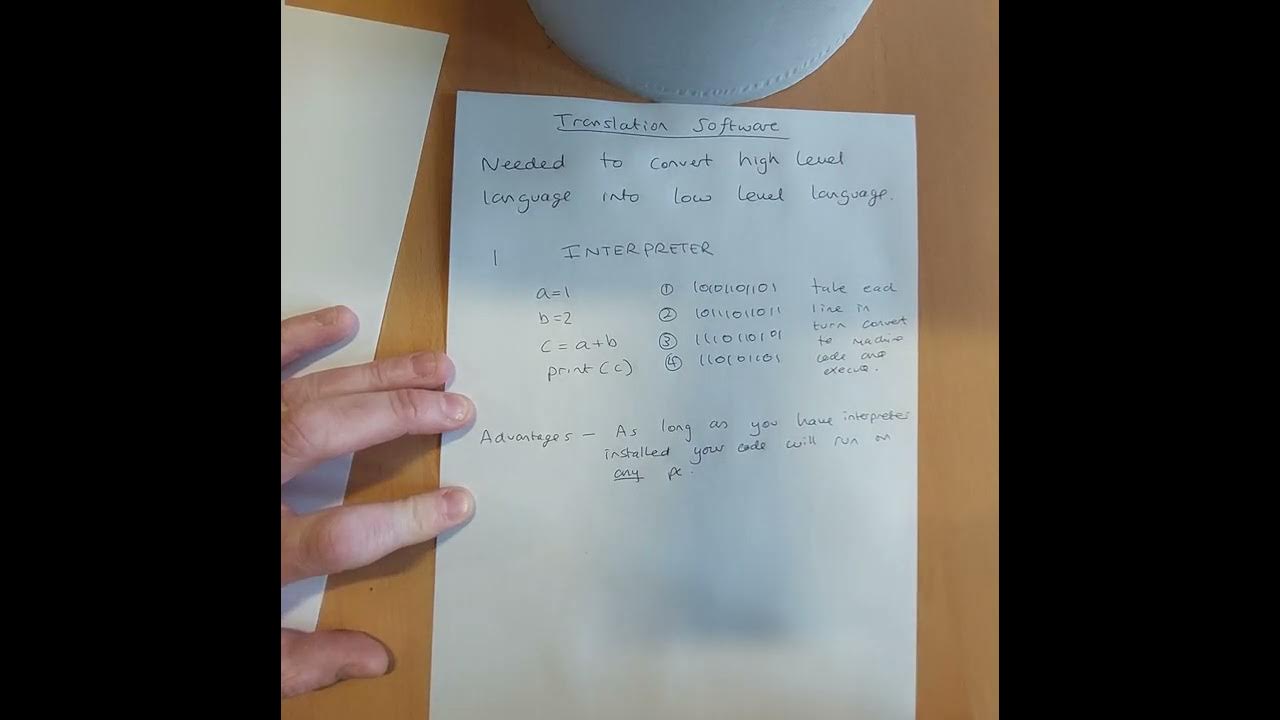 Translation Software
Needed to convert high level
language into low level language.
1 INTERPRETER
a=1 ① 10101101101 take each
b=2 ② 10111011011 line in
c = a+b ③ 1110110101 turn convert
print(c) ④ 110101101 to machine
code and
execute.
Advantages — As long as you have interpreter
installed your code will run on
any pc.